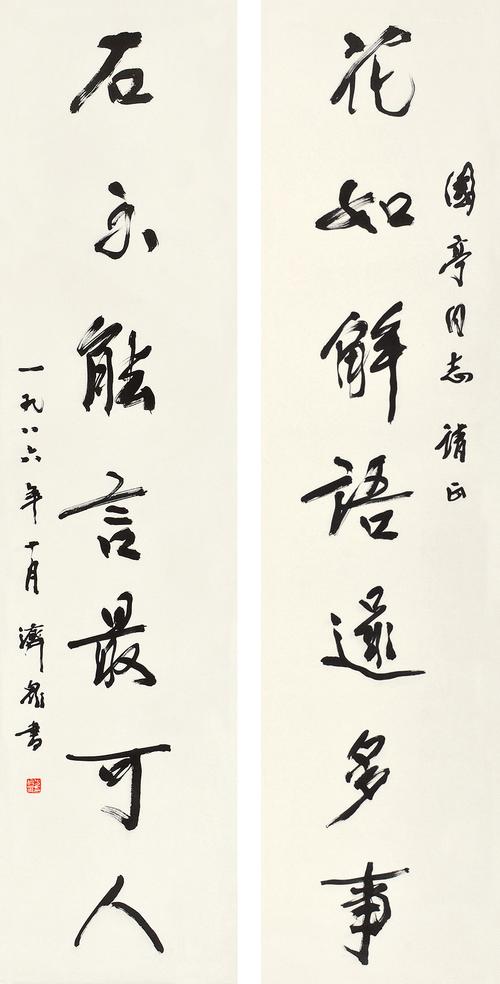 國亭同志 請正
花如解語還多事
石不能言最可人
一九八六年十月 濟眾書